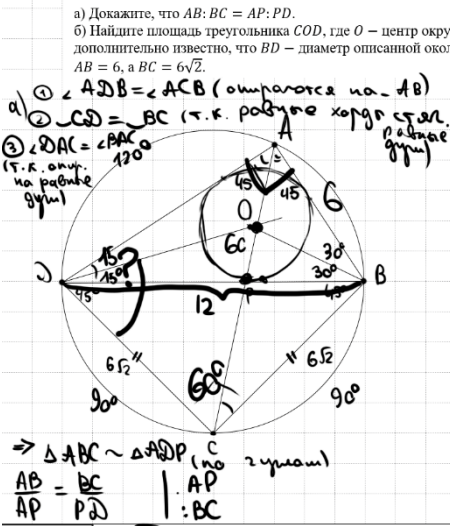 а) Докажите, что AB:BC = AP:PD.
б) Найдите площадь треугольника COD, где O − центр окру
дополнительно известно, что BD − диаметр описанной окол
AB = 6, а BC = 6√2.
а) ① ∠ADB = ∠ACB (опираются на ◡AB)
② ◡CD = ◡BC (т.к. равные хорды стяг.
равные
дуги)
③ ∠DAC = ∠BAC
(т.к. опир.
на равные
дуги)
120°
A
45 45
6
O
60
15°
15°
30°
30°
D
B
45°
45°
P
12
6√2
6√2
60°
90°
90°
C
=> △ABC ~ △ADP (по 2 углам)
AB/AP = BC/PD | · AP
: BC